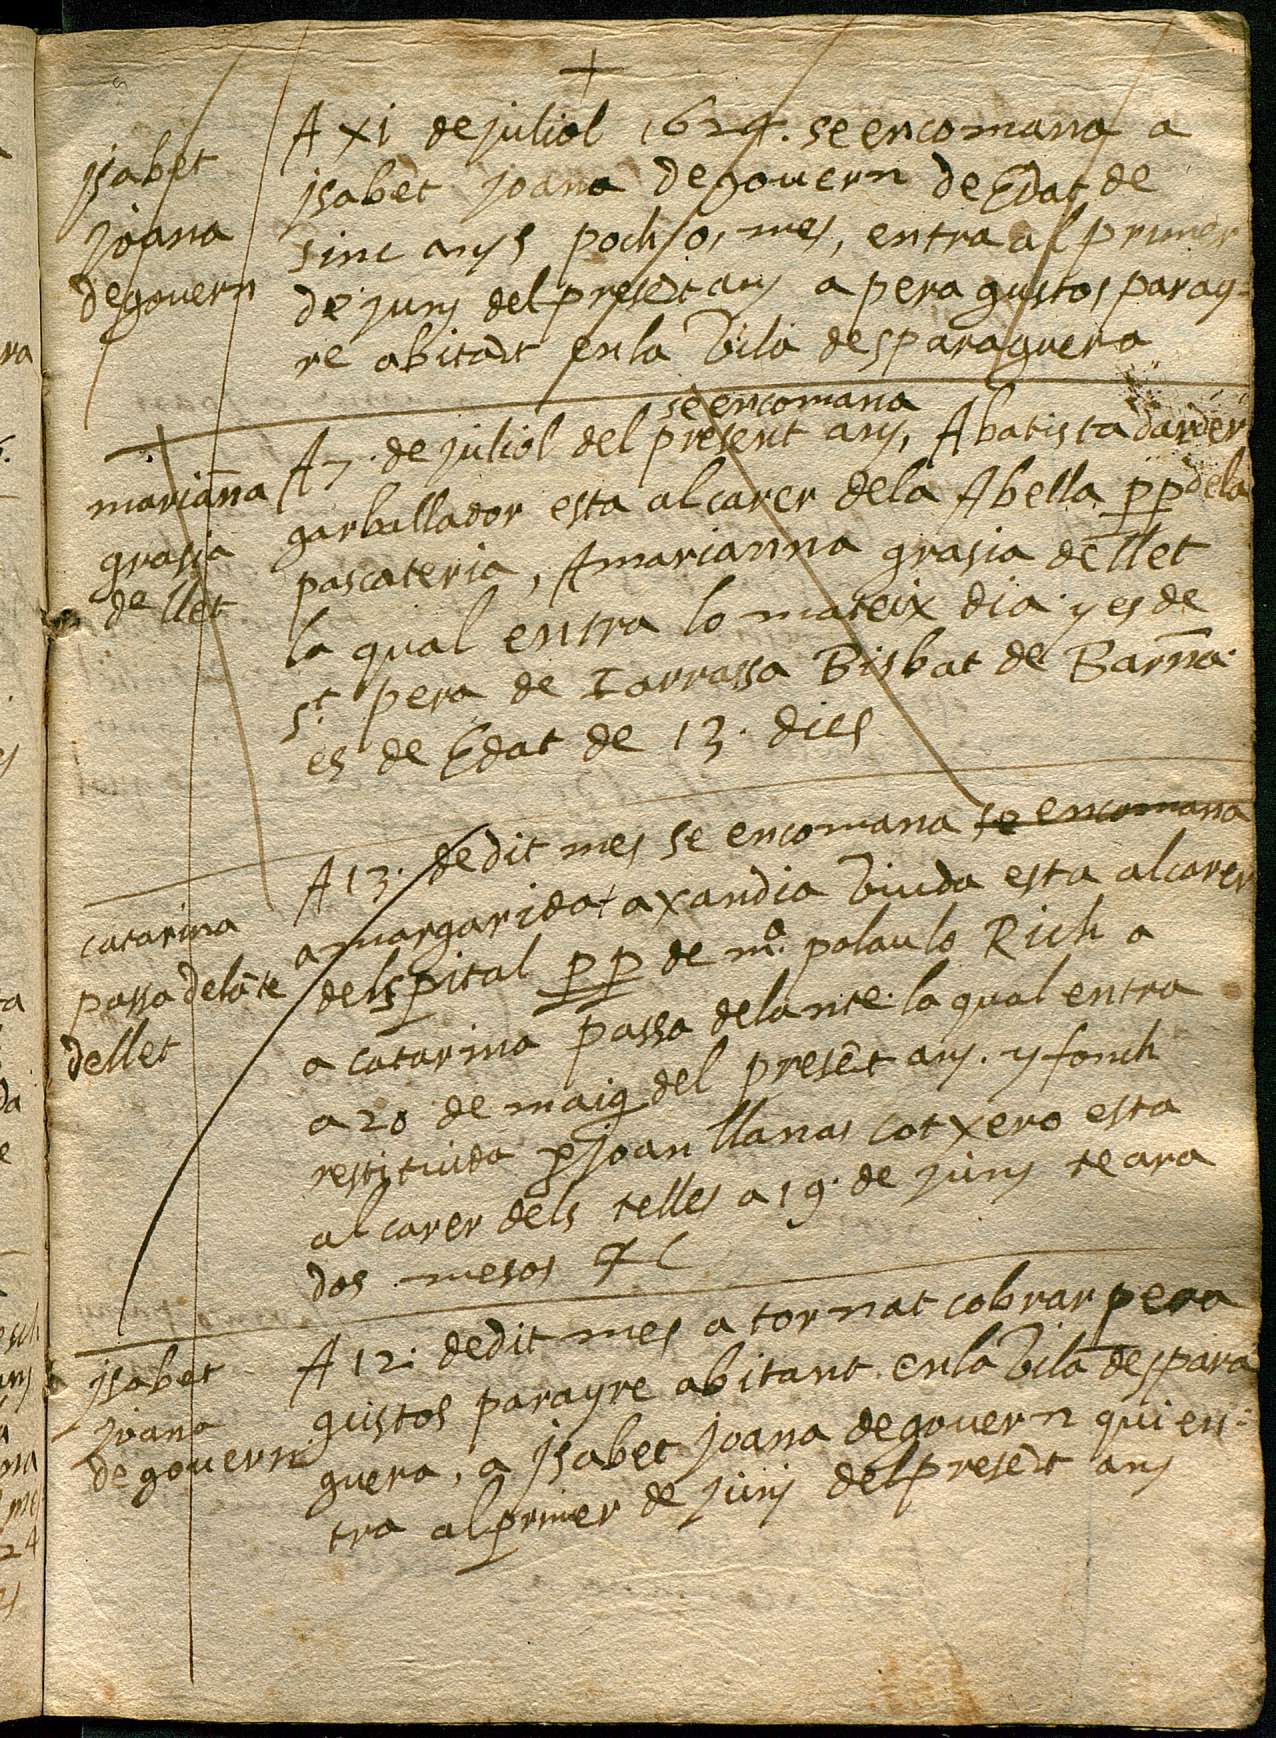 +
jsabet
joana
degouern
A xi de juliol 1624. se encomana a
jsabet joana de gouern de Edat de
sinc anys poch, o, mes, entra al primer
de juny del presẽt any a pera gustos paray=
re abitãt en la Vila desparaguera
marianna
grasia
de llet
se encomana
A 7. de juliol del present any, A batista darder
garbullador esta al carer dela Abella pp dela
pascateria, A marianna grasia de llet
la qual entra lo mateix dia y es de
st. pera de Tarrassa Bisbat de Barna.
es de Edat de 13. dies
catarina
passa delãte
dellet
A 13. de dit mes se encomana se encomana
a margarida taxandia Viuda esta al carer
delspital pp de mª. palau lo Rich a
a catarina passa delante. la qual entra
a 20 de maig del presẽt any. y fonch
restituida p joan llanas cotxero esta
al carer dels telles a 19. de juny te ara
dos mesos
jsabet
joana
de gouern
A 12. de dit mes a tornat cobrar pera
gustos parayre abitant en la Vila despara
guera, a jsabet joana de gouern qui en=
tra al primer de juny del presẽt any